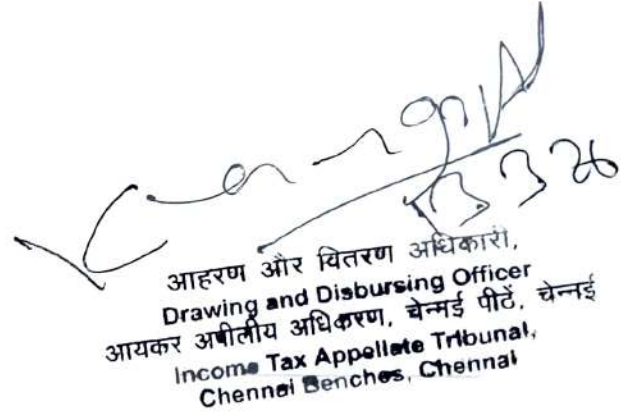 13 3 26
आहरण और वितरण अधिकारी,
Drawing and Disbursing Officer
आयकर अपीलीय अधिकरण, चेन्नई पीठें, चेन्नई
Income Tax Appellate Tribunal,
Chennai Benches, Chennai